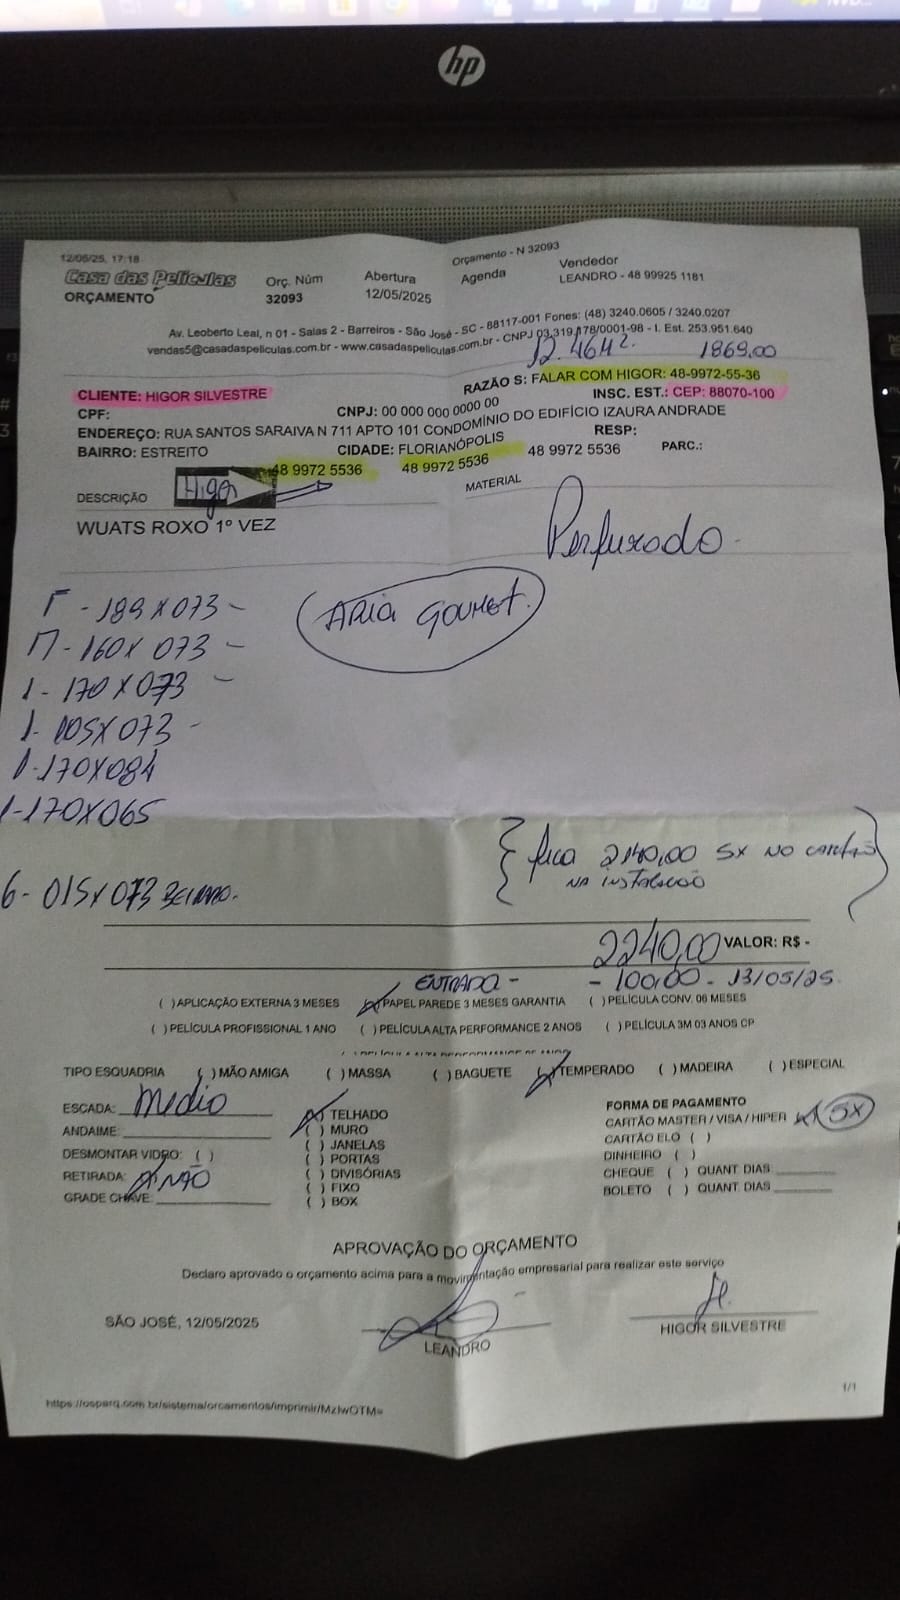 hp
12/05/25, 17:18
Orçamento - N 32093
Casa das Películas
ORÇAMENTO
Orç. Núm
32093
Abertura
12/05/2025
Agenda
Vendedor
LEANDRO - 48 99925 1181
Av. Leoberto Leal, n 01 - Salas 2 - Barreiros - São José - SC - 88117-001 Fones: (48) 3240.0605 / 3240.0207
vendas5@casadaspeliculas.com.br - www.casadaspeliculas.com.br - CNPJ 03.319.178/0001-98 - I. Est. 253.951.640
12.464². 1869,00
CLIENTE: HIGOR SILVESTRE
RAZÃO S: FALAR COM HIGOR: 48-9972-55-36
CPF:
CNPJ: 00 000 000 0000 00
INSC. EST.: CEP: 88070-100
ENDEREÇO: RUA SANTOS SARAIVA N 711 APTO 101 CONDOMÍNIO DO EDIFÍCIO IZAURA ANDRADE
BAIRRO: ESTREITO
CIDADE: FLORIANÓPOLIS
RESP:
48 9972 5536
48 9972 5536
48 9972 5536
PARC.:
DESCRIÇÃO
Higor
MATERIAL
WUATS ROXO 1º VEZ
Perfurado
- 189 X 073 -
ARIA GOUMET.
- 160 X 073 -
1 - 170 X 073 -
1 - 105 X 073 -
1 - 170 X 084
1 - 170 X 065
{ fica 2140,00 5X NO CARTÃO }
NA INSTALAÇÃO
6 - 015 X 073
2240,00 VALOR: R$ -
ENTRADA - - 100,00 - 13/05/25.
( ) APLICAÇÃO EXTERNA 3 MESES
(X) PAPEL PAREDE 3 MESES GARANTIA
( ) PELÍCULA CONV. 06 MESES
( ) PELÍCULA PROFISSIONAL 1 ANO
( ) PELÍCULA ALTA PERFORMANCE 2 ANOS
( ) PELÍCULA 3M 03 ANOS CP
TIPO ESQUADRIA
( ) MÃO AMIGA
( ) MASSA
( ) BAGUETE
(X) TEMPERADO
( ) MADEIRA
( ) ESPECIAL
ESCADA: Medio
ANDAIME:
DESMONTAR VIDRO: ( )
RETIRADA: (X) NÃO
GRADE CHAVE:
(X) TELHADO
( ) MURO
( ) JANELAS
( ) PORTAS
( ) DIVISÓRIAS
( ) FIXO
( ) BOX
FORMA DE PAGAMENTO
CARTÃO MASTER / VISA / HIPER (X) 5X
CARTÃO ELO ( )
DINHEIRO ( )
CHEQUE ( ) QUANT DIAS
BOLETO ( ) QUANT. DIAS
APROVAÇÃO DO ORÇAMENTO
Declaro aprovado o orçamento acima para a movimentação empresarial para realizar este serviço
SÃO JOSÉ, 12/05/2025
LEANDRO
HIGOR SILVESTRE
1/1
https://osparq.com.br/sistema/orcamentos/imprimir/MzIwOTM=